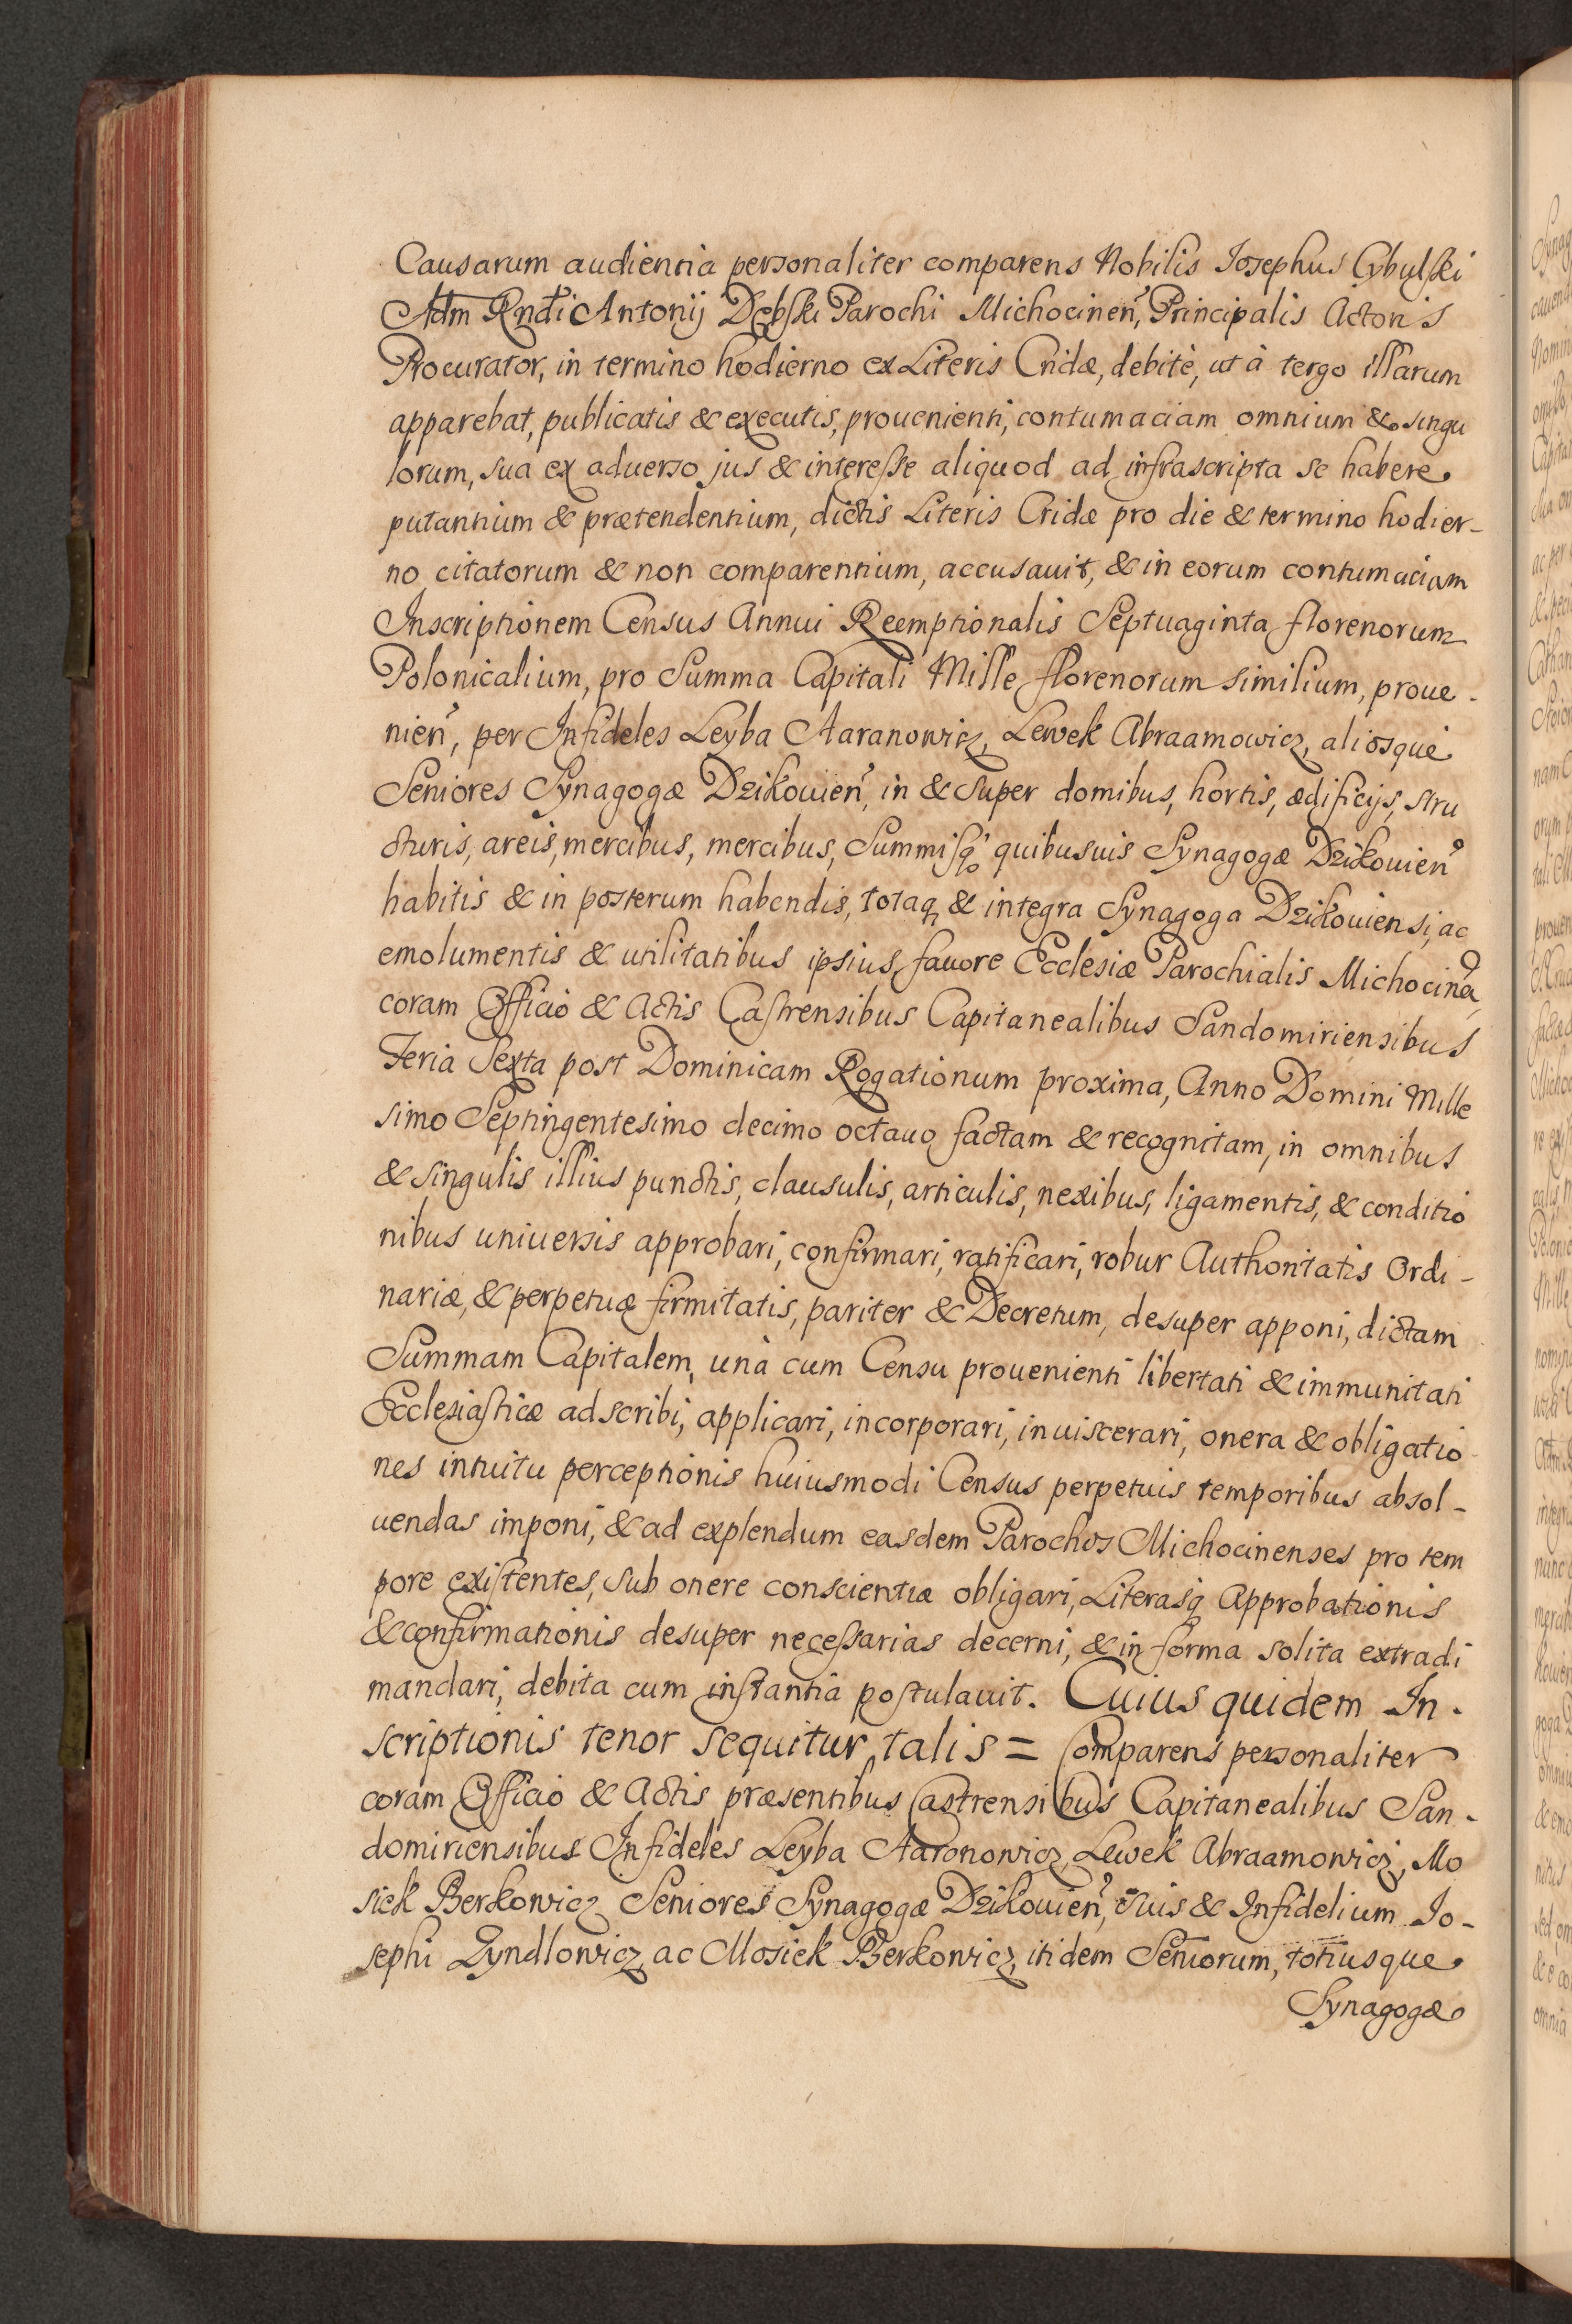 Causarum audientia personaliter comparens Nobilis Josephus Cybulski
Adm Rndi Antonij Dębski Parochi Michocinen, Principalis Actoris
Procurator, in termino hodierno ex Literis Cridæ, debitè, ut à tergo illarum
apparebat, publicatis & executis, prouenienti, contumaciam omnium & singu
lorum, sua ex aduerso jus & interesse aliquod ad infrascripta se habere
putantium & prætendentium, dictis Literis Cridæ pro die & termino hodier-
no citatorum & non comparentium, accusauit, & in eorum contumaciam
Inscriptionem Census Annui Reemptionalis Septuaginta florenorum
Polonicalium, pro Summa Capitali Mille florenorum similium, proue-
nien, per Infideles Leyba Aaranowicz, Lewek Abraamowicz, aliosque
Seniores Synagogæ Dzikouien, in & super domibus, hortis, ædificijs, stru
cturis, areis, mercibus, mercibus, Summisq quibusuis Synagogæ Dzikouien
habitis & in posterum habendis, totaq & integra Synagoga Dzikouiensi, ac
emolumentis & utilitatibus ipsius, fauore Ecclesiæ Parochialis Michocina,
coram Officio & Actis Castrensibus Capitanealibus Sandomiriensibus
Feria Sexta post Dominicam Rogationum proxima, Anno Domini Mille
simo Septingentesimo decimo octauo factam & recognitam, in omnibus
& singulis illius punctis, clausulis, articulis, nexibus, ligamentis, & conditio
nibus uniuersis approbari, confirmari, ratificari, robur Authoritatis Ordi-
nariæ, & perpetuæ firmitatis, pariter & Decretum, desuper apponi, dictam
Summam Capitalem, unà cum Censu prouenienti libertati & immunitati
Ecclesiasticæ adscribi, applicari, incorporari, inuiscerari, onera & obligatio
nes intuitu perceptionis huiusmodi Census perpetuis temporibus absol-
uendas imponi, & ad explendum easdem Parochos Michocinenses pro tem
pore existentes, sub onere conscientiæ obligari, Literasq Approbationis
& confirmationis desuper necessarias decerni, & in forma solita extradi
mandari, debita cum instantia postulauit. Cuius quidem In-
scriptionis tenor sequitur talis = Comparens personaliter
coram Officio & Actis præsentibus Castrensibus Capitanealibus San-
domiriensibus Infideles Leyba Aaronowicz, Lewek Abraamowicz, Mo
siek Berkowicz Seniores Synagogæ Dzikouien, suis & Infidelium Jo-
sephi Zyndlowicz, ac Mosiek Berkowicz, itidem Seniorum, totiusque
Synagogæ